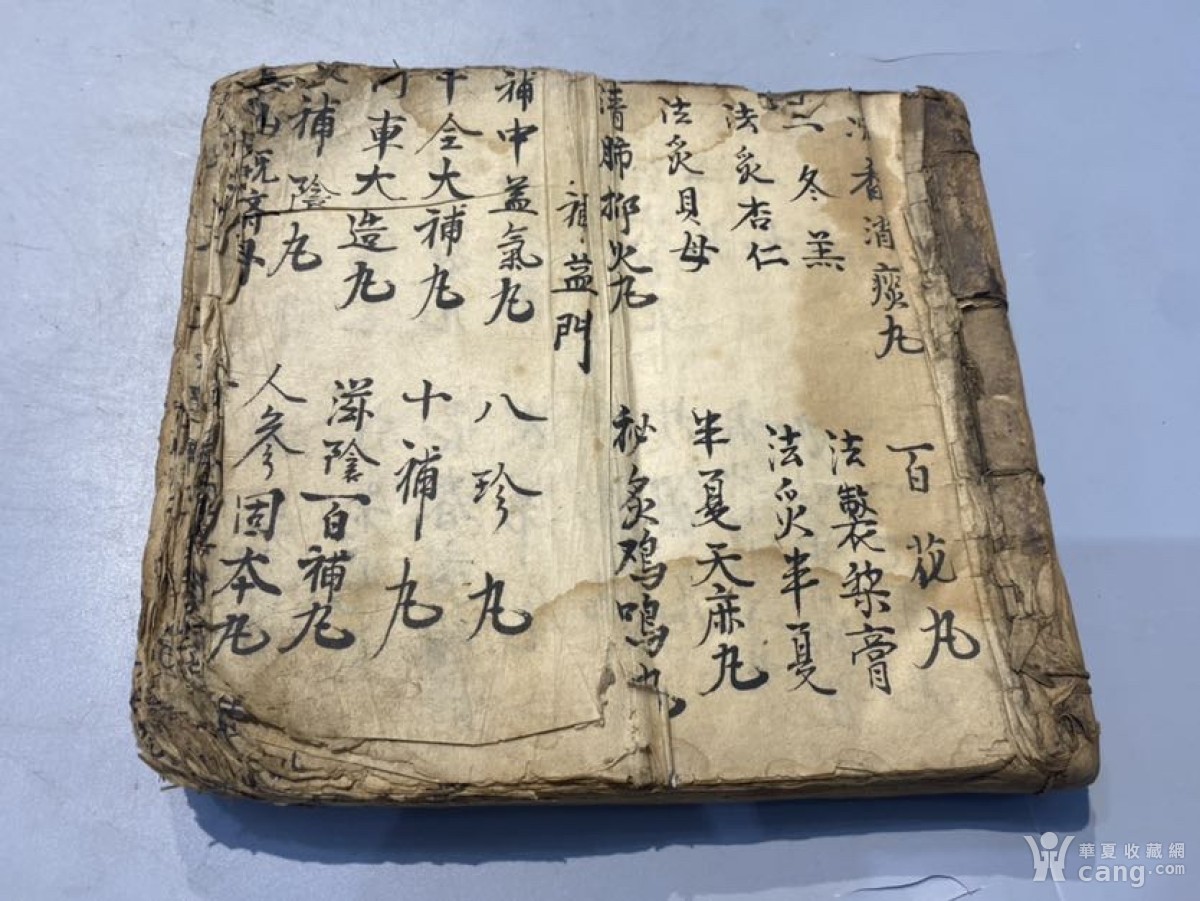 香消痰丸
百花丸
冬羔
法製梨膏
法炙杏仁
法炙半夏
法炙貝母
半夏天麻丸
清肺抑火丸
秘炙鸡鳴丸
補益門
補中益氣丸
八珍丸
十全大補丸
十補丸
車大造丸
滋陰百補丸
補陰丸
人參固本丸
華夏收藏網
cang.com